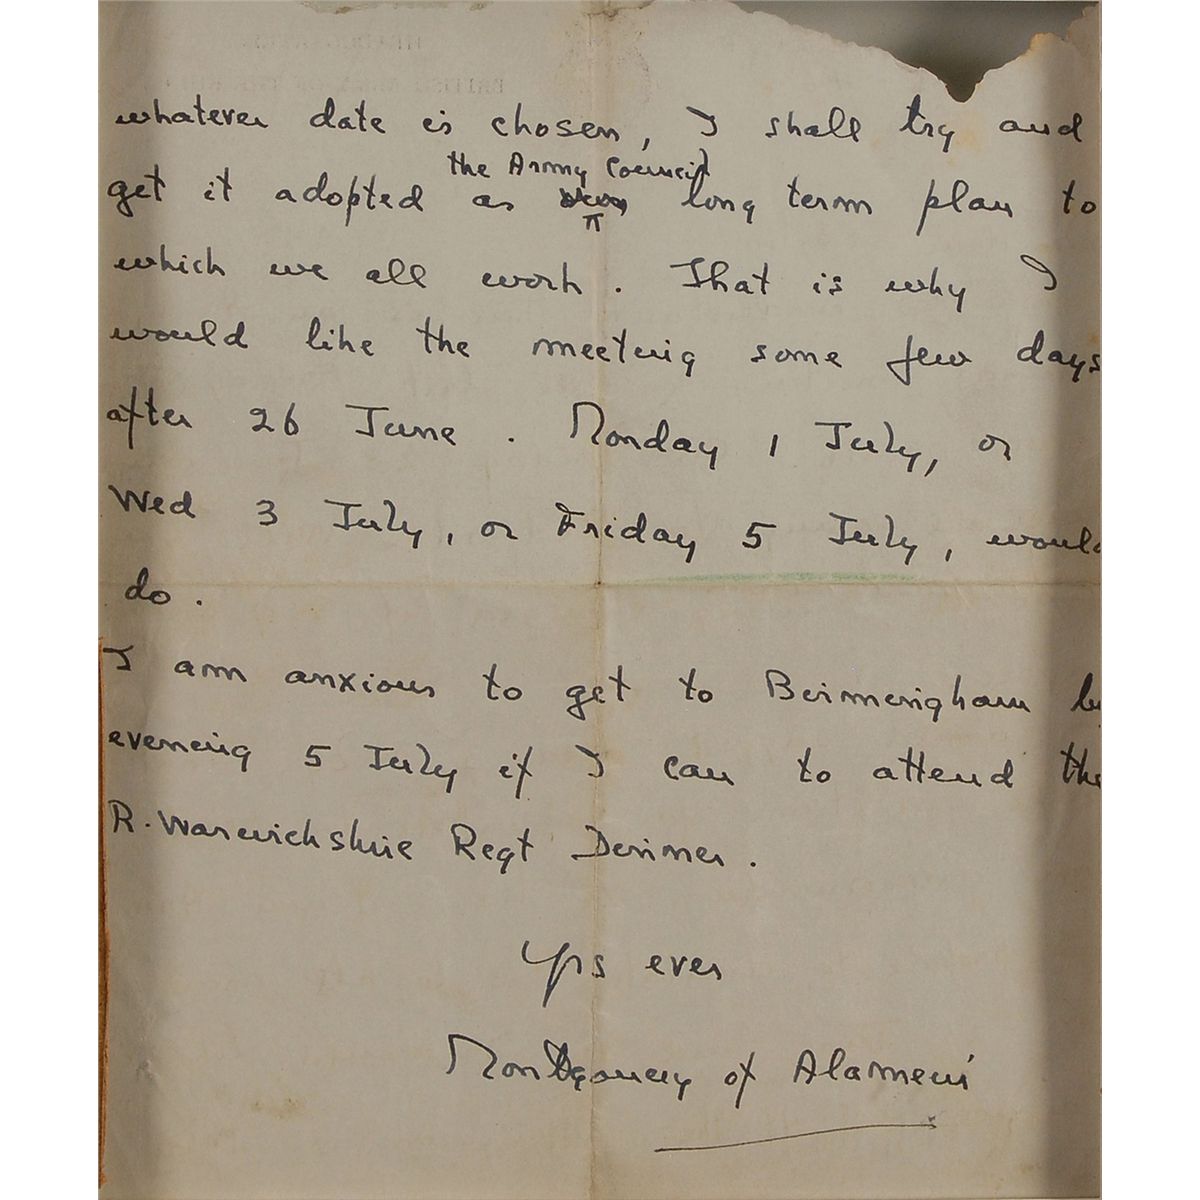 whatever date is chosen, I shall try and
the Army Council
get it adopted as long term plan to
which we all work. That is why I
would like the meeting some few days
after 26 June. Monday 1 July, or
Wed 3 July, or Friday 5 July, would
do.
I am anxious to get to Birmingham by
evening 5 July if I can to attend the
R. Warwickshire Regt Dinner.
Yrs ever
Montgomery of Alamein